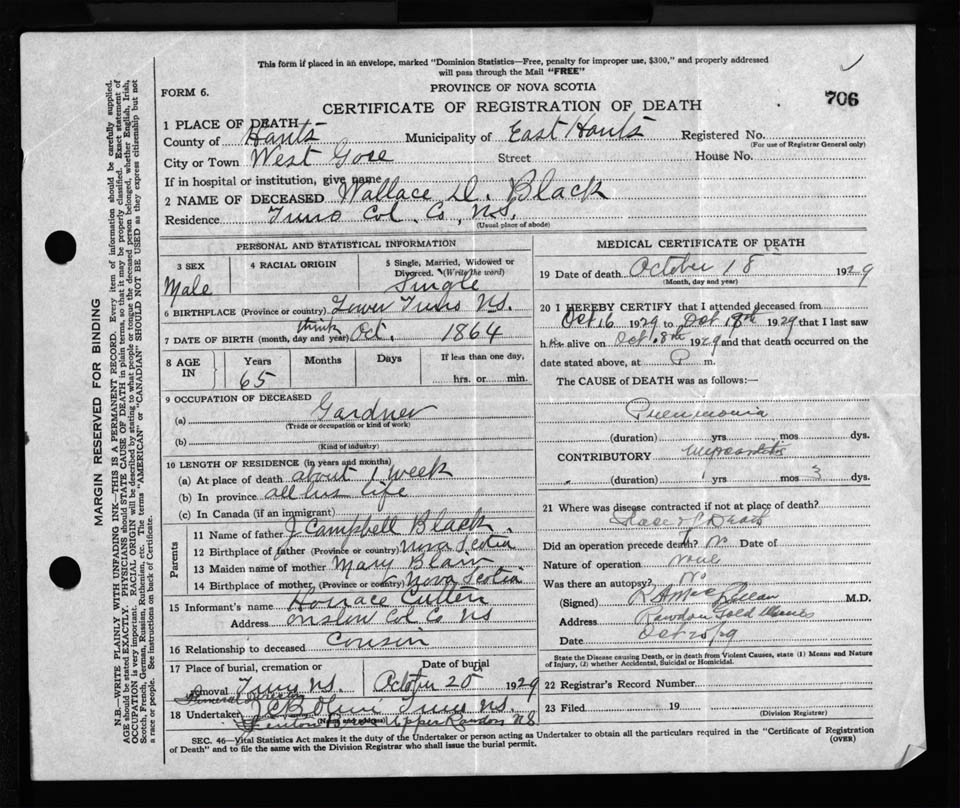 This form if placed in an envelope, marked "Dominion Statistics—Free, penalty for improper use, $300," and properly addressed
will pass through the Mail "FREE"
PROVINCE OF NOVA SCOTIA
FORM 6.
CERTIFICATE OF REGISTRATION OF DEATH
706
1 PLACE OF DEATH
County of Hants Municipality of East Hants Registered No.
(For use of Registrar General only)
City or Town West Gore Street House No.
If in hospital or institution, give name
2 NAME OF DECEASED Wallace D. Black
Residence Truro Col. Co, N.S.
(Usual place of abode)
PERSONAL AND STATISTICAL INFORMATION
3 SEX 4 RACIAL ORIGIN 5 Single, Married, Widowed or
Divorced. (Write the word)
Male Single
6 BIRTHPLACE (Province or country) Lower Truro N.S.
think
7 DATE OF BIRTH (month, day and year) Oct. 1864
8 AGE IN Years Months Days If less than one day,
65 hrs. or min.
9 OCCUPATION OF DECEASED
(a) Gardner
(Trade or occupation or kind of work)
(b)
(Kind of industry)
10 LENGTH OF RESIDENCE (in years and months)
(a) At place of death about 1 week
(b) In province all his life
(c) In Canada (if an immigrant)
Parents
11 Name of father J. Campbell Black
12 Birthplace of father (Province or country) Nova Scotia
13 Maiden name of mother Mary Blair
14 Birthplace of mother (Province or country) Nova Scotia
15 Informant's name Horrace Cutten
Address Onslow Col. Co NS
16 Relationship to deceased Cousin
17 Place of burial, cremation or Date of burial
removal Truro N.S. October 20 1929
Funeral
18 Undertaker Truro N.S.
(Name and address) Upper Rawdon N.S.
MEDICAL CERTIFICATE OF DEATH
19 Date of death October 18th 1929
(Month, day and year)
20 I HEREBY CERTIFY that I attended deceased from
Oct 16 1929 to Oct 18th 1929 that I last saw
him alive on Oct 18th 1929 and that death occurred on the
date stated above, at P. m.
The CAUSE of DEATH was as follows:—
Pneumonia
(duration) yrs mos dys.
CONTRIBUTORY Myocarditis
(duration) yrs mos 3 dys.
21 Where was disease contracted if not at place of death?
Place of Death
Did an operation precede death? No Date of
Nature of operation none
Was there an autopsy? No
(Signed) M.D.
Address Rawdon Gold Mines
Date Oct 20/29
State the Disease causing Death, or in death from Violent Causes, state (1) Means and Nature
of Injury, (2) whether Accidental, Suicidal or Homicidal.
22 Registrar's Record Number
23 Filed 19
(Division Registrar)
SEC. 46—Vital Statistics Act makes it the duty of the Undertaker or person acting as Undertaker to obtain all the particulars required in the "Certificate of Registration
of Death" and to file the same with the Division Registrar who shall issue the burial permit. (OVER)
MARGIN RESERVED FOR BINDING
N.B.—WRITE PLAINLY WITH UNFADING INK—THIS IS A PERMANENT RECORD. Every item of information should be carefully supplied.
AGE should be stated EXACTLY. PHYSICIANS should STATE CAUSE OF DEATH in plain terms, so that it may be properly classified. Exact statement of
OCCUPATION is very important. RACIAL ORIGIN will be described by stating to what people or tongue the deceased person belonged, whether English, Irish,
Scotch, French, German, Russian, Ruthenian, etc. The terms "AMERICAN" or "CANADIAN" SHOULD NOT BE USED as they express citizenship but not
a race or people. See instructions on back of Certificate.